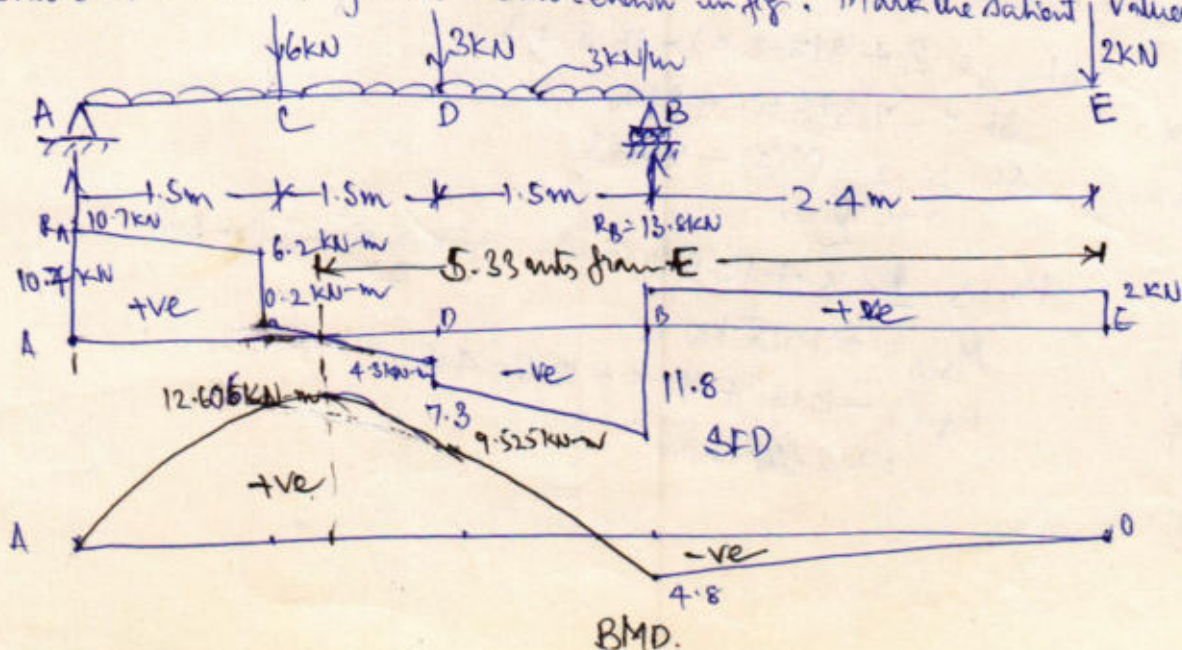 shown in fig. Mark the salient values
6KN 3KN 3KN/m 2KN
A C D B E
1.5m 1.5m 1.5m 2.4m
RA 10.7KN RB=13.8KN
6.2 KN-m
5.33 mts from E
10.7 KN 0.2 KN-m 2KN
+ve D B +ve E
A 4.3KN-m -ve 11.8
12.606KN-m 7.3
9.525KN-m SFD
+ve
A -ve 0
4.8
BMD.